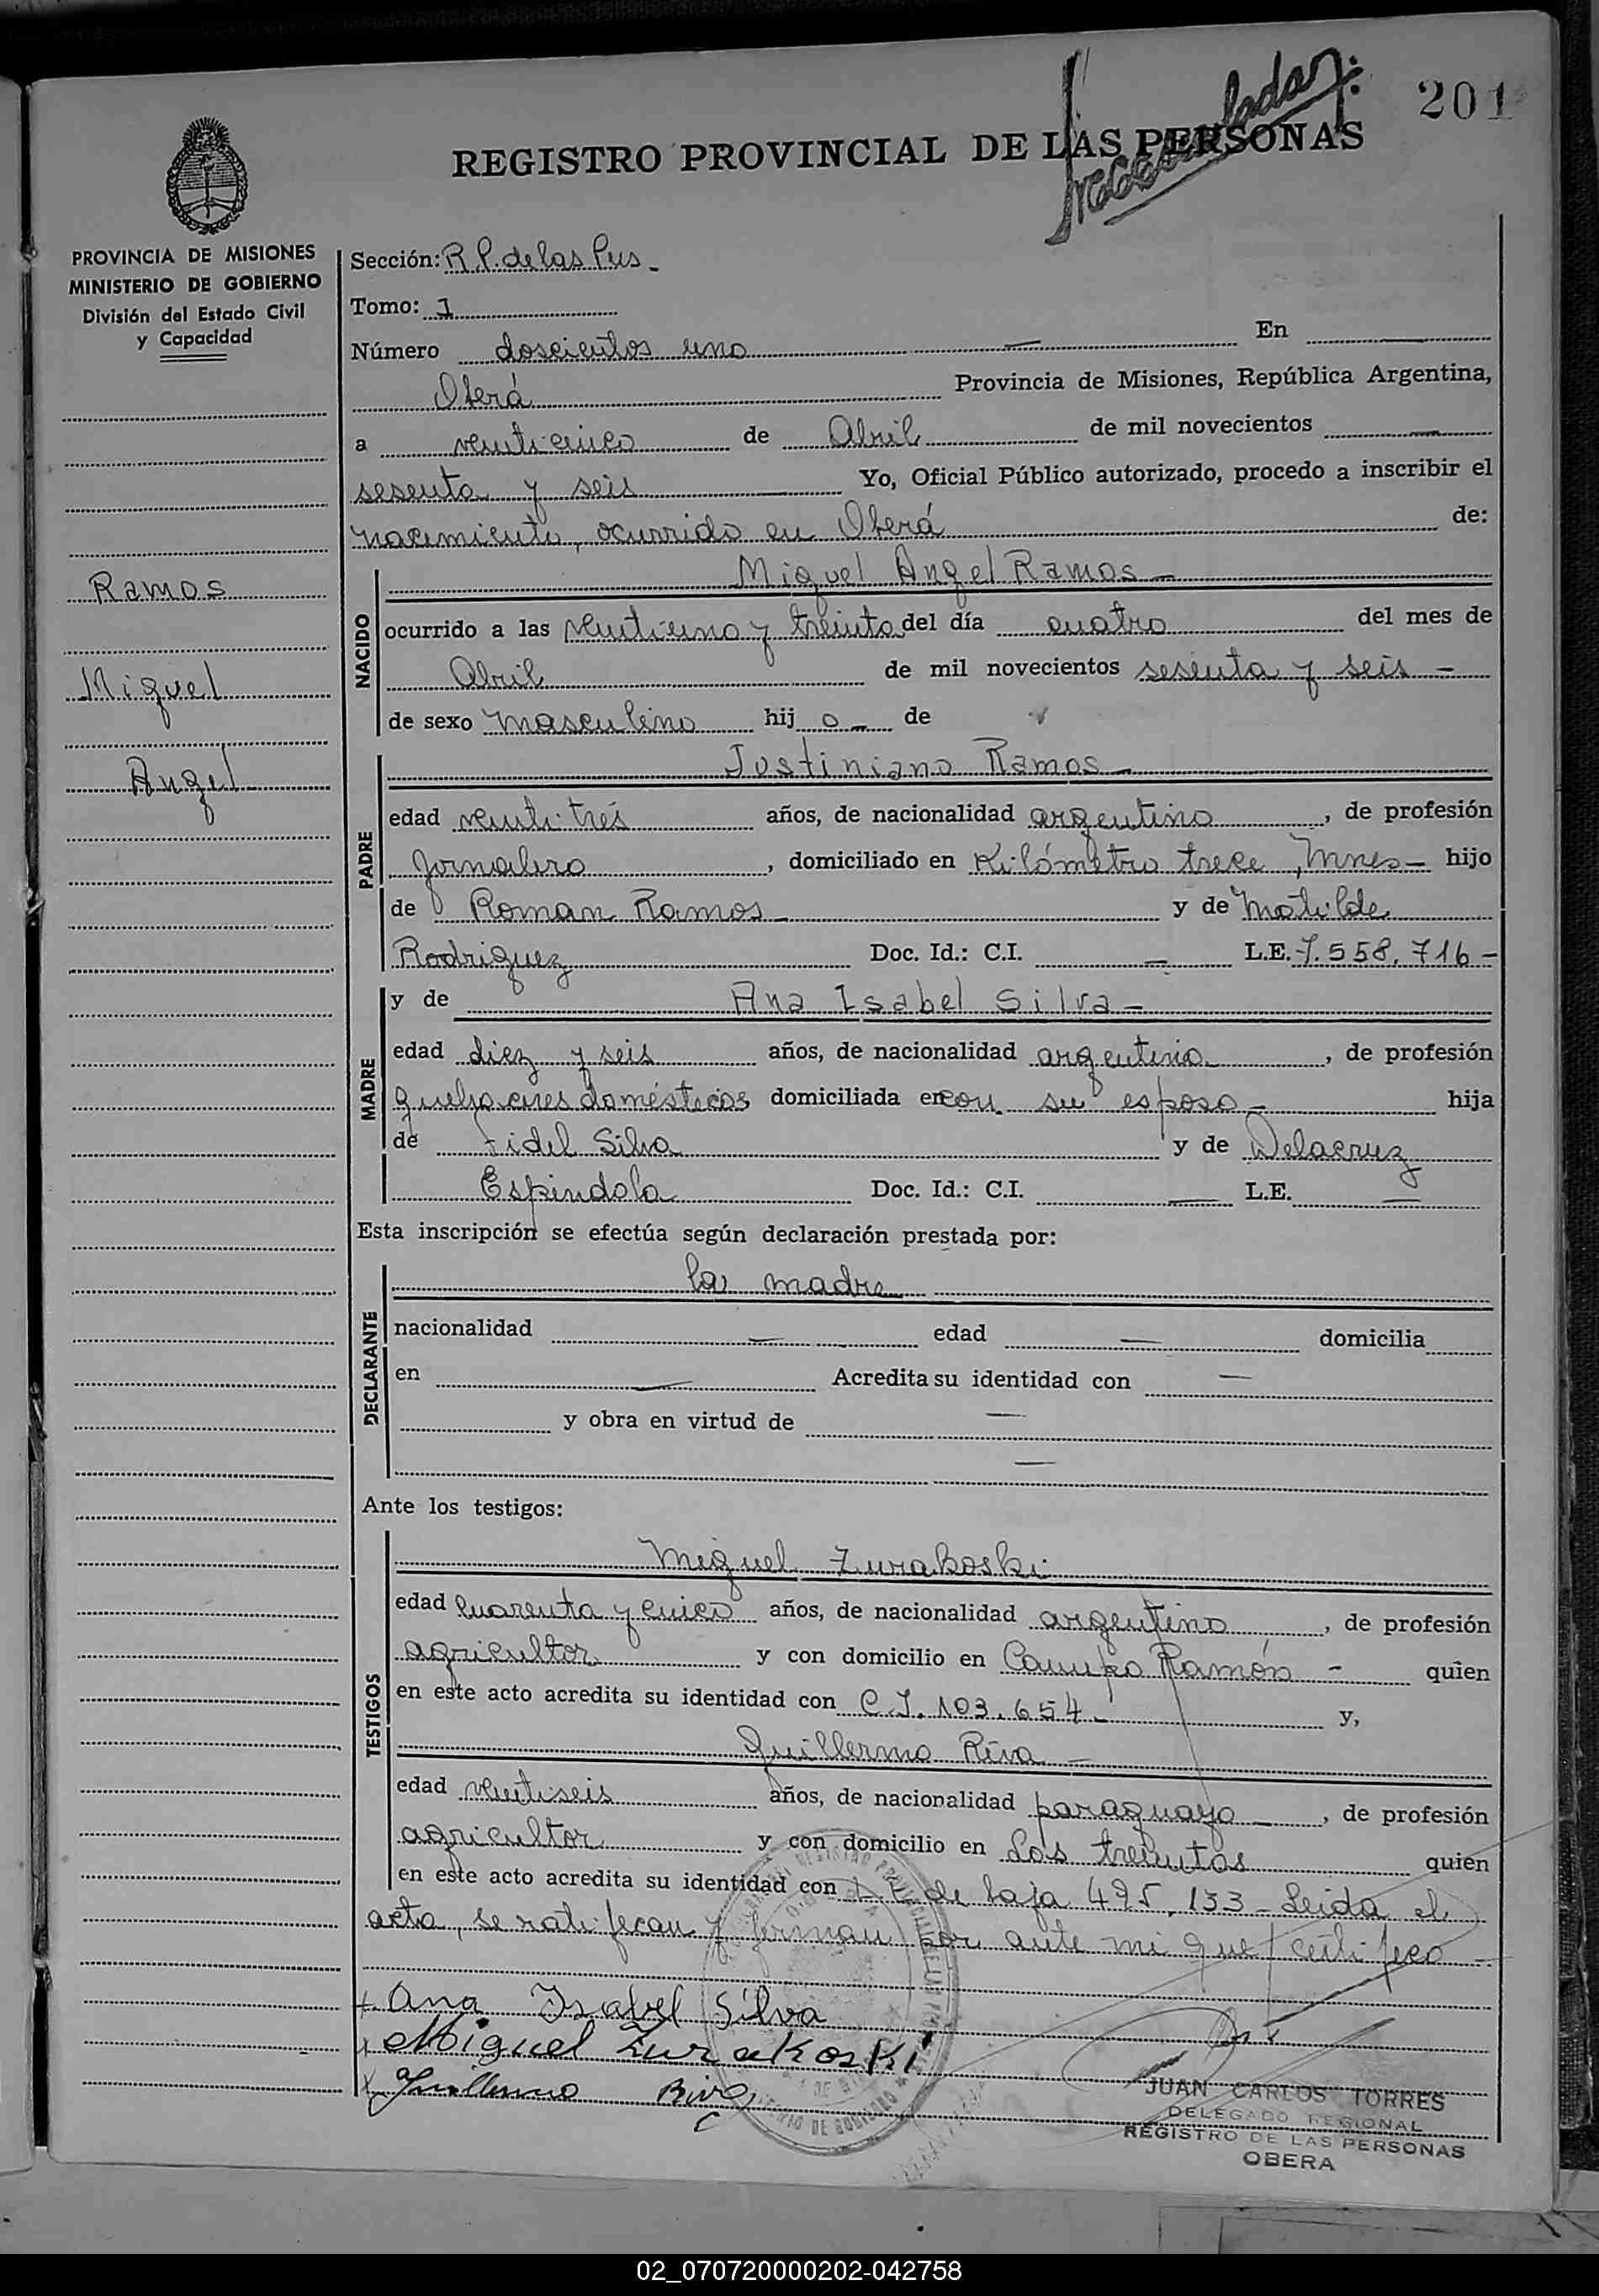 201
REGISTRO PROVINCIAL DE LAS PERSONAS
PROVINCIA DE MISIONES
MINISTERIO DE GOBIERNO
División del Estado Civil
y Capacidad
Ramos
Miguel
Angel
Sección: R.P. de las Pers -
Tomo: I
Número doscientos uno — En —
Oberá Provincia de Misiones, República Argentina,
a veinticinco de Abril de mil novecientos —
sesenta y seis Yo, Oficial Público autorizado, procedo a inscribir el
nacimiento, ocurrido en Oberá de:
NACIDO
Miguel Angel Ramos -
ocurrido a las veintiuno y treinta del día cuatro del mes de
Abril de mil novecientos sesenta y seis -
de sexo masculino hij o - de
PADRE
Justiniano Ramos -
edad veintitrés años, de nacionalidad argentino, de profesión
jornalero, domiciliado en Kilómetro trece, Mnes - hijo
de Roman Ramos - y de Matilde
Rodriguez Doc. Id.: C.I. — L.E. 7.558.716 -
MADRE
y de Ana Isabel Silva -
edad diez y seis años, de nacionalidad argentina, de profesión
quehaceres domésticos domiciliada en con su esposo - hija
de Fidel Silva y de Delacruz
Espindola Doc. Id.: C.I. — L.E. —
Esta inscripción se efectúa según declaración prestada por:
DECLARANTE
la madre
nacionalidad — edad — domicilia
en — Acredita su identidad con —
y obra en virtud de —
—
Ante los testigos:
TESTIGOS
Miguel Zurakoski
edad cuarenta y cinco años, de nacionalidad argentino, de profesión
agricultor y con domicilio en Campo Ramón - quien
en este acto acredita su identidad con C.I. 103.654 - y,
Guillermo Riva -
edad veintiseis años, de nacionalidad paraguayo -, de profesión
agricultor y con domicilio en Los treintas quien
en este acto acredita su identidad con L.E. de baja 495.133 - Leida el
acta, se ratifican y firman por ante mi que certifico -
Ana Isabel Silva
Miguel Zurakoski
Guillermo Riva
JUAN CARLOS TORRES
DELEGADO REGIONAL
REGISTRO DE LAS PERSONAS
OBERA
02_070720000202-042758